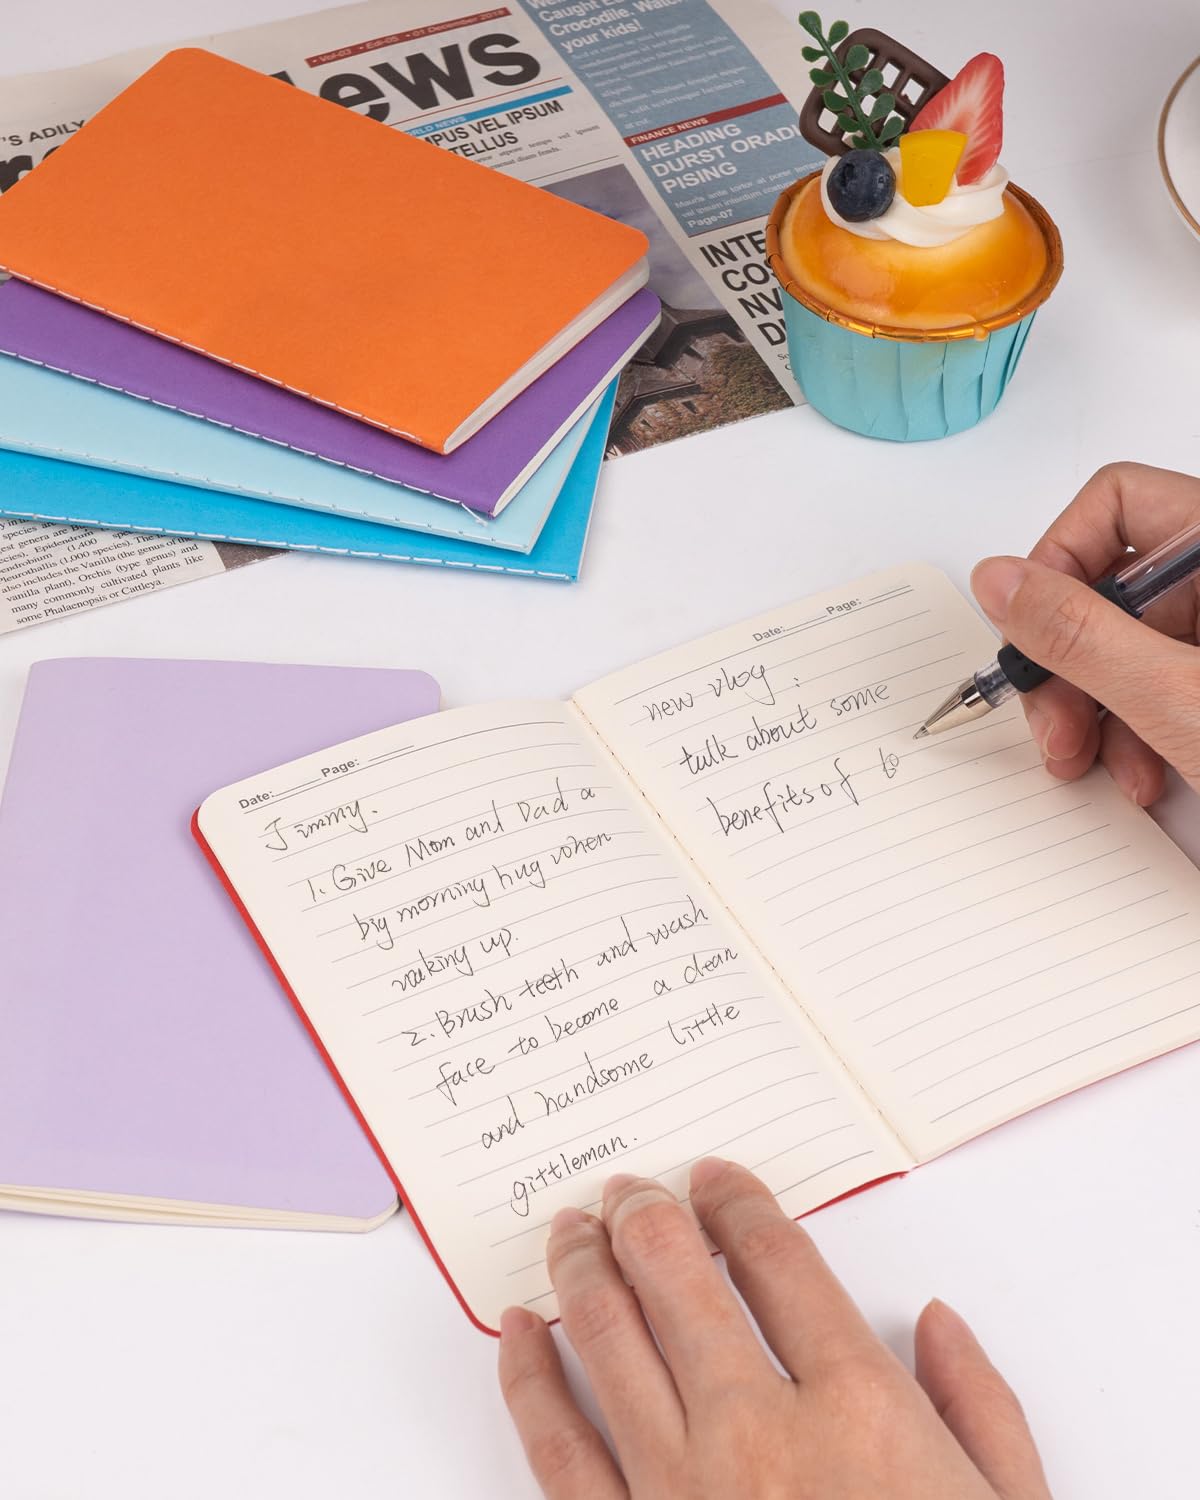 • Vol-03 • Edi-05 • 01 December 2018
ews
'S ADILY
Caught
Crocodile. Watch
your kids!
WORLD NEWS
MPUS VEL IPSUM
TELLUS
FINANCE NEWS
HEADING
DURST ORADI
PISING
Mauris ante tortor at porer tempus
vel ipsum interdum costure
Page-07
INTE
COS
NV
D
species are
genera are
Epidendrum (1,400 species),
(1,000 species). The
also includes the Vanilla (the genus of the
vanilla plant), Orchis (type genus) and
many commonly cultivated plants like
some Phalaenopsis or Cattleya.
Date:______ Page: ______
Jimmy.
1. Give Mom and Dad a
big morning hug when
waking up.
2. Brush teeth and wash
face to become a clean
and handsome little
gittleman.
Date:______ Page: ______
new vlog :
talk about some
benefits of